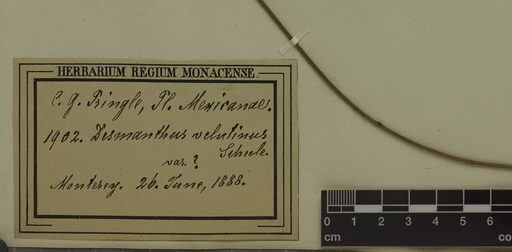 HERBARIUM REGIUM MONACENSE.
C. G. Pringle, Pl. Mexicanae.
1902. Desmanthus velutinus
Scheele.
var.?
Monterey. 26. June, 1888.
0 1 2 3 4 5 6
cm co